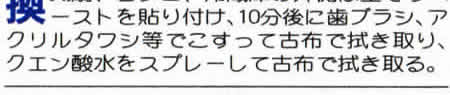 換
ーストを貼り付け、10分後に歯ブラシ、ア
クリルタワシ等でこすって古布で拭き取り、
クエン酸水をスプレーして古布で拭き取る。